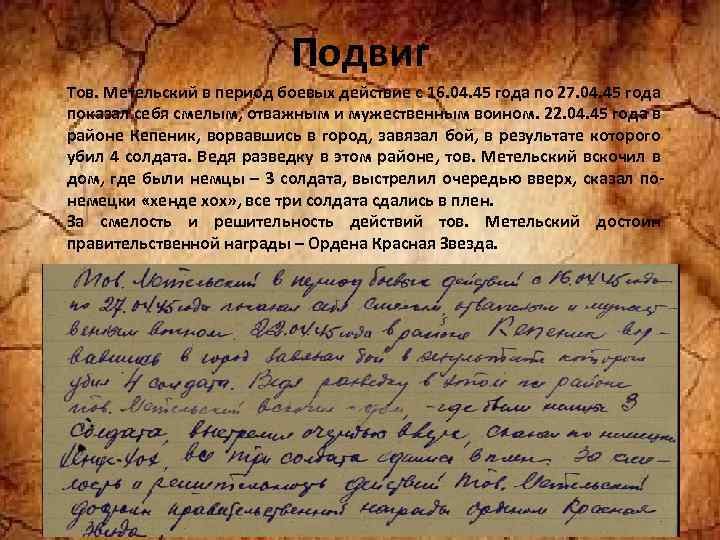 Подвиг
Тов. Метельский в период боевых действие с 16.04.45 года по 27.04.45 года
показал себя смелым, отважным и мужественным воином. 22.04.45 года в
районе Кепеник, ворвавшись в город, завязал бой, в результате которого
убил 4 солдата. Ведя разведку в этом районе, тов. Метельский вскочил в
дом, где были немцы – 3 солдата, выстрелил очередью вверх, сказал по-
немецки «хенде хох», все три солдата сдались в плен.
За смелость и решительность действий тов. Метельский достоин
правительственной награды – Ордена Красная Звезда.
Тов. Метельский в период боевых действий с 16.04.45 года
по 27.04.45 года показал себя смелым, отважным и мужест-
венным воином. 22.04.45 года в районе Кепеник вор-
вавшись в город завязал бой в результате которого
убил 4 солдата. Ведя разведку в этом районе
тов. Метельский вскочил дом, где были немцы 3
солдата, выстрелил очередью вверх, сказал по немецки
Хенде-Хох, все три солдата сдались в плен. За сме-
лость и решительность действий Тов. Метельский
достоин правительственной награды орденом Красная
Звезда.